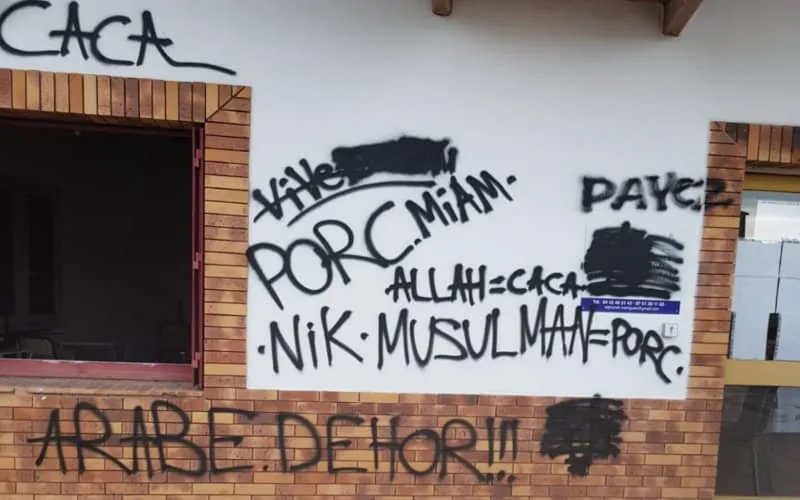 CACA
ViVe
PORC.MiAM.
PAYEZ
ALLAH=CACA
.NiK.MUSULMAN=PORC.
ARABE.DEHOR!!!